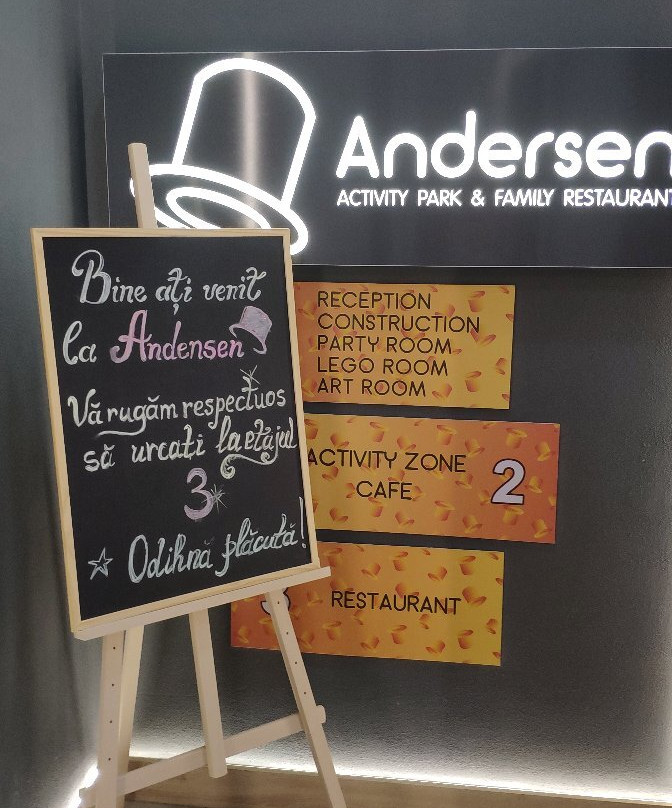 Andersen
ACTIVITY PARK & FAMILY RESTAURANT
Bine ați venit
la Andensen
Vă rugăm respectuos
să urcați la etajul
3
Odihnă plăcută!
RECEPTION
CONSTRUCTION
PARTY ROOM
LEGO ROOM
ART ROOM
ACTIVITY ZONE
CAFE
2
3
RESTAURANT